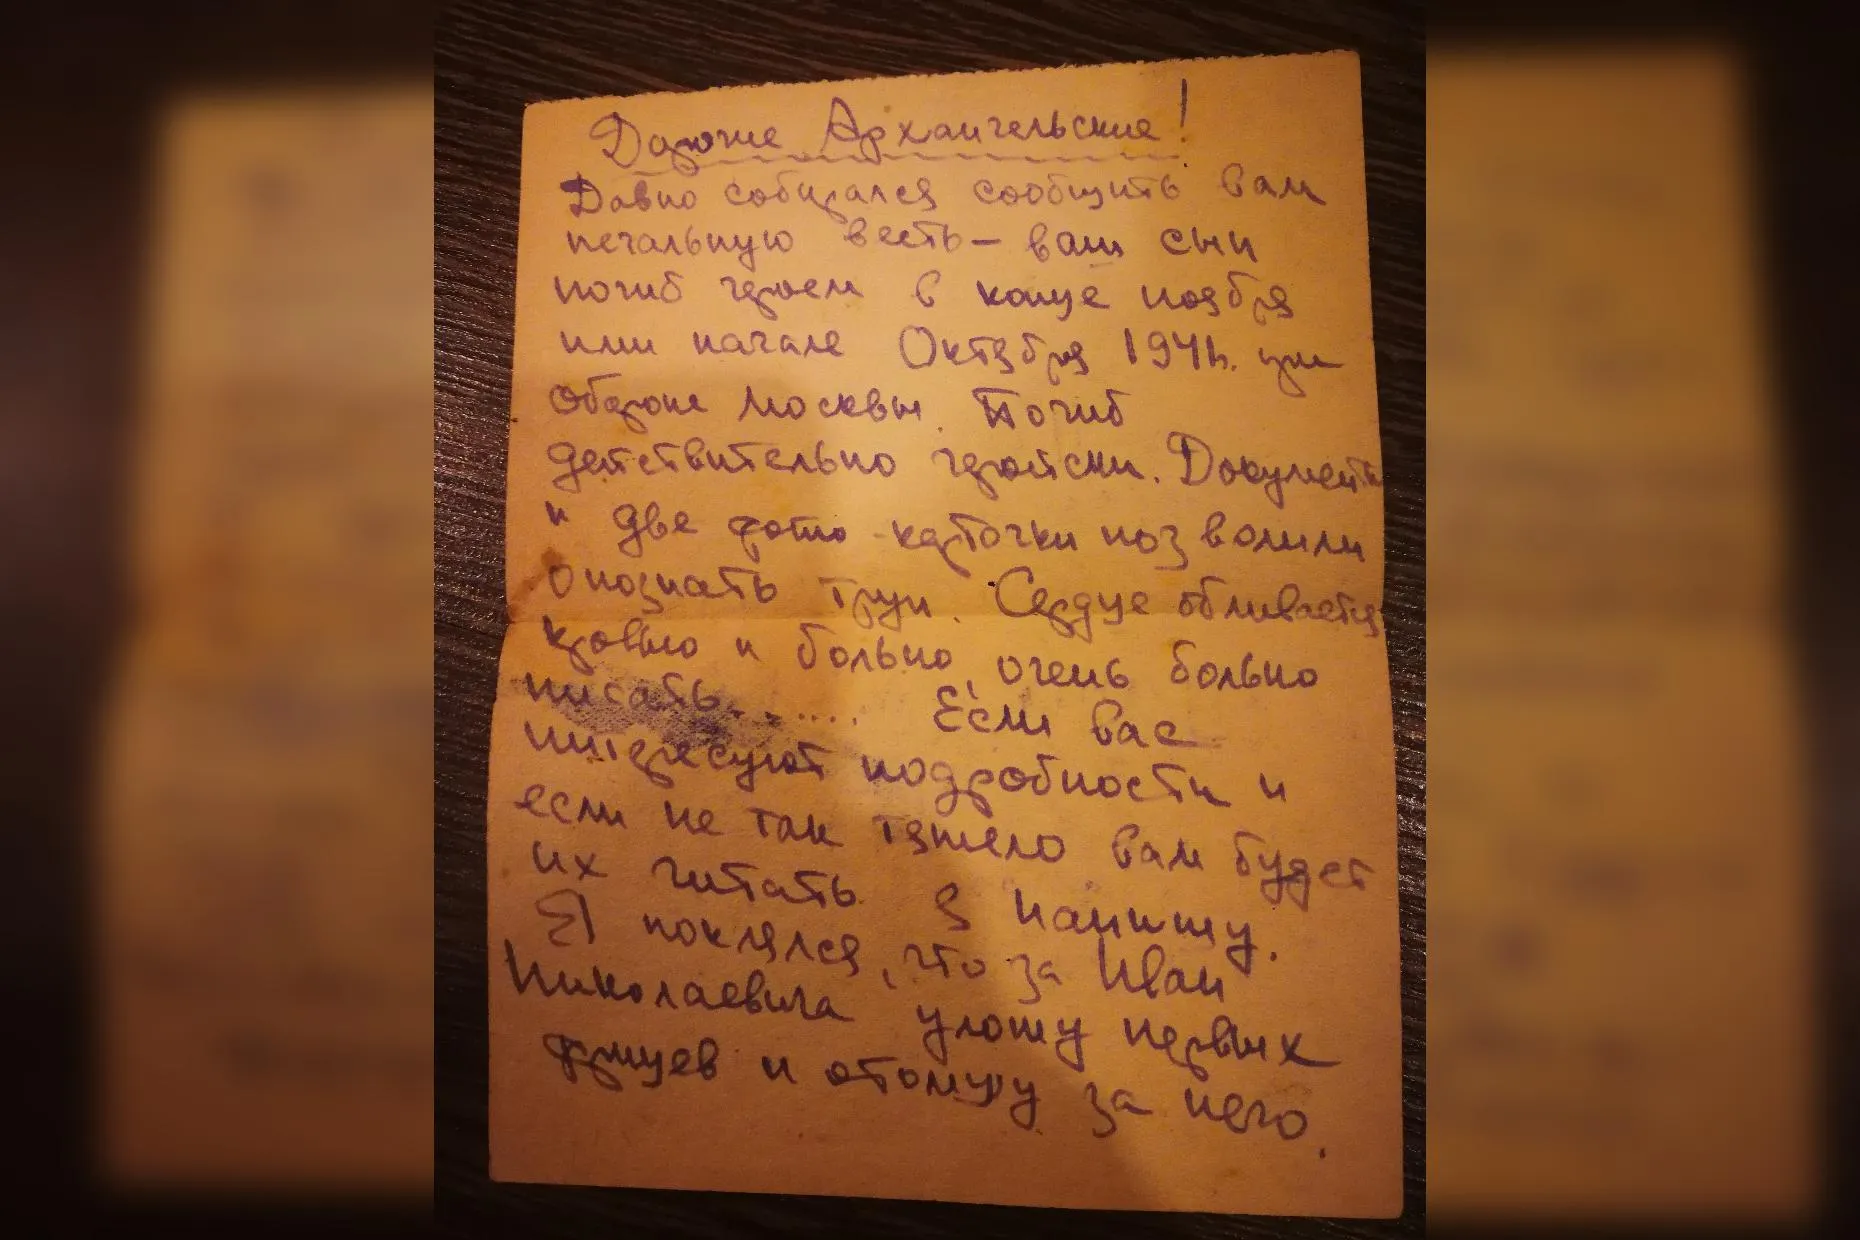 Дорогие Архангельские!
Давно собирался сообщить вам
печальную весть – ваш сын
погиб героем в конце ноября
или начале Октября 1941г. при
обороне Москвы. Погиб
действительно геройски. Документы
и две фото-карточки позволили
опознать труп. Сердце обливается
кровью и больно, очень больно
писать....... Если вас
интересуют подробности и
если не так тяжело вам будет
их читать я напишу.
Я поклялся, что за Иван
Николаевича уложу первых
фрицев и отомщу за него.